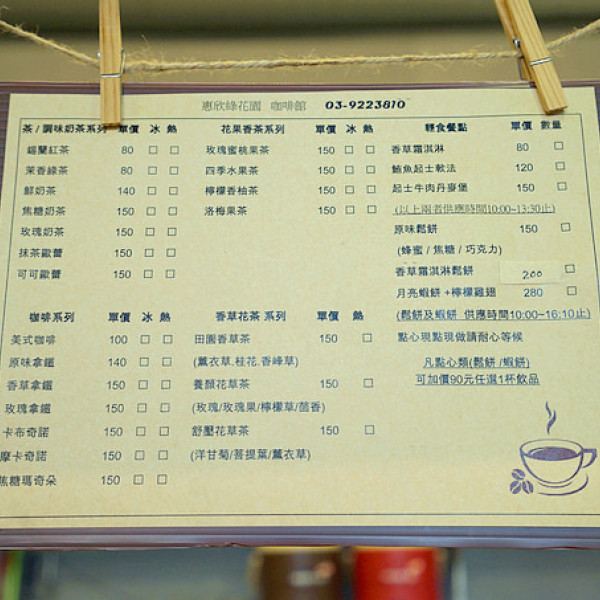 惠欣綠花園 咖啡館 03-9223810
茶/調味奶茶系列 單價 冰 熱
錫蘭紅茶 80 □ □
茉香綠茶 80 □ □
鮮奶茶 140 □ □
焦糖奶茶 150 □ □
玫瑰奶茶 150 □ □
抹茶歐蕾 150 □ □
可可歐蕾 150 □ □
花果香茶系列 單價 冰 熱
玫瑰蜜桃果茶 150 □ □
四季水果茶 150 □ □
檸檬香柚茶 150 □ □
洛梅果茶 150 □ □
輕食餐點 單價 數量
香草霜淇淋 80 □
鮪魚起士軟法 120 □
起士牛肉丹麥堡 150 □
(以上兩者供應時間10:00~13:30止)
原味鬆餅 150 □
(蜂蜜/焦糖/巧克力)
香草霜淇淋鬆餅 200 □
月亮蝦餅+檸檬雞翅 280 □
(鬆餅及蝦餅 供應時間10:00~16:10止)
點心現點現做請耐心等候
凡點心類(鬆餅/蝦餅)
可加價90元任選1杯飲品
咖啡系列 單價 冰 熱
美式咖啡 100 □ □
原味拿鐵 140 □ □
香草拿鐵 150 □ □
玫瑰拿鐵 150 □ □
卡布奇諾 150 □ □
摩卡奇諾 150 □ □
焦糖瑪奇朵 150 □ □
香草花茶 系列 單價 熱
田園香草茶 150 □
(薰衣草.桂花.香蜂草)
養顏花草茶 150 □
(玫瑰/玫瑰果/檸檬草/茴香)
舒壓花草茶 150 □
(洋甘菊/菩提葉/薰衣草)